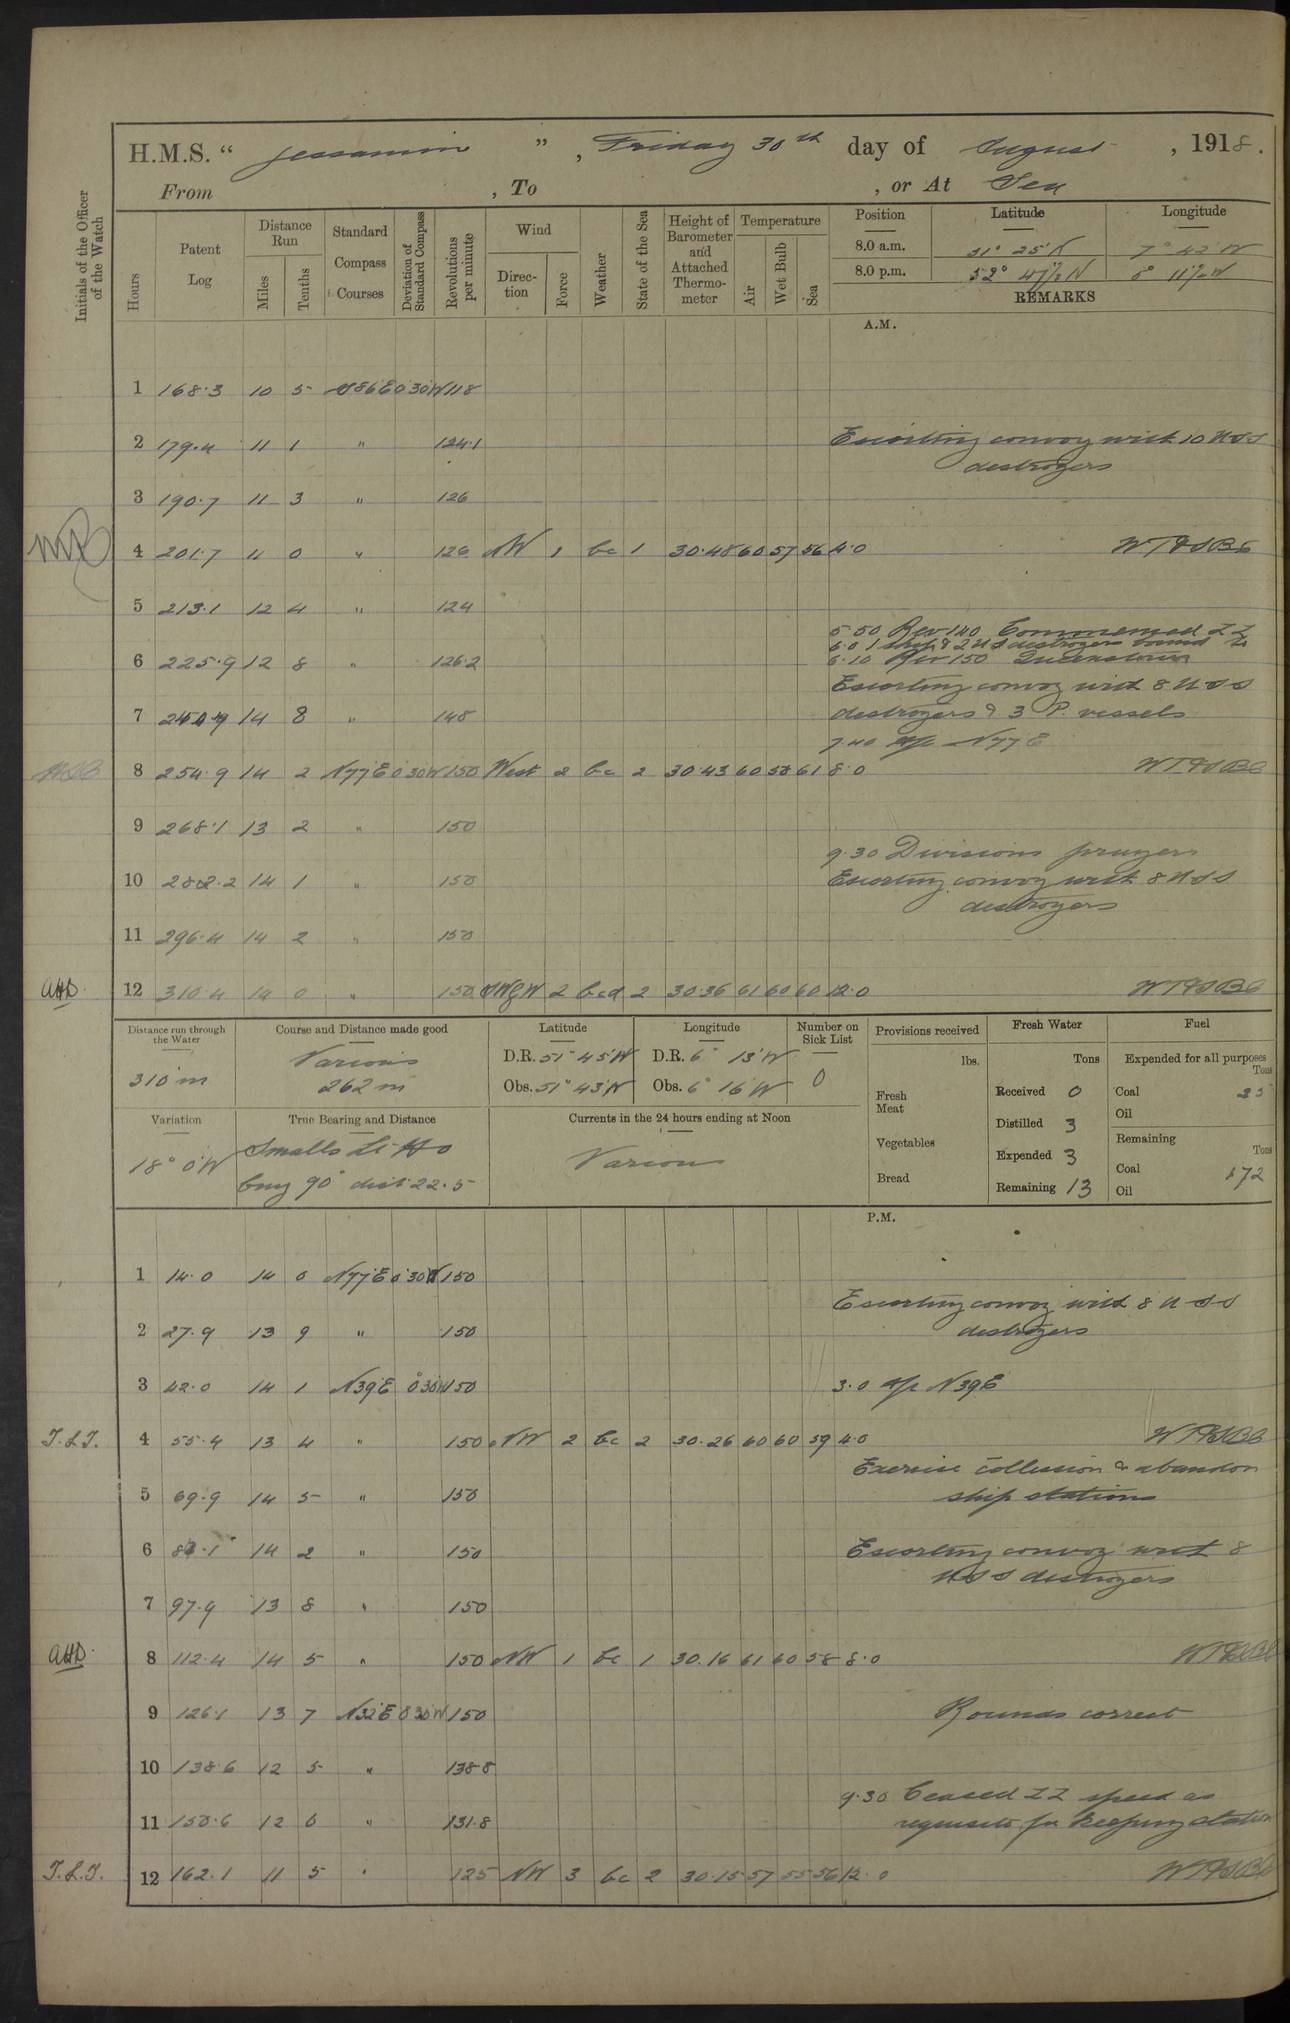 H.M.S. " Jessamine ", Friday 30th day of August, 1918.
From , To , or At Sea
Initials of the Officer of the Watch
Hours
Patent Log
Distance Run
Miles
Tenths
Standard Compass Courses
Deviation of Standard Compass
Revolutions per minute
Wind
Direction
Force
Weather
State of the Sea
Height of Barometer and Attached Thermometer
Temperature
Air
Wet Bulb
Sea
Position Latitude Longitude
8.0 a.m. 51° 25' N 7° 42' W
8.0 p.m. 52° 47½ N 6° 11½ W
REMARKS
A.M.
1 168.3 10 5 S86E 0 30W 118
2 179.4 11 1 " 124.1
Escorting convoy with 10 USS
destroyers
3 190.7 11 3 " 126
4 201.7 11 0 " 126 NW 1 bc 1 30.48 60 57 56 4.0 WT&SBC
5 213.1 12 4 " 124
5.50 Rev 140 Commenced ZZ
6.0 1 ship & 2 US destroyers bound to
6 225.9 12 8 " 126.2
6.10 Rev 150 Queenstown
Escorting convoy with 8 USS
7 240.9 14 8 " 148
destroyers & 3 P. vessels
7.40 A/c N77E
8 254.9 14 2 N77E 0 30W 150 West 2 bc 2 30.43 60 58 61 8.0 WT&SBC
9 268.1 13 2 " 150
9.30 Divisions prayers
10 282.2 14 1 " 150
Escorting convoy with 8 USS
destroyers
11 296.4 14 2 " 150
AHD. 12 310.4 14 0 " 150 SW 2 bcd 2 30.36 61 60 60 12.0 WT&SBC
Distance run through the Water
310 m
Course and Distance made good
Various
262 m
Latitude
D.R. 51° 45' N
Obs. 51° 43' N
Longitude
D.R. 6° 13' W
Obs. 6° 16' W
Number on Sick List
0
Provisions received
lbs.
Fresh Meat
Vegetables
Bread
Fresh Water
Tons
Received 0
Distilled 3
Expended 3
Remaining 13
Fuel
Expended for all purposes
Tons
Coal 35
Oil
Remaining
Tons
Coal 172
Oil
Variation
18° 0' W
True Bearing and Distance
Smalls Lt Ho
brng 90° dist 22.5
Currents in the 24 hours ending at Noon
Various
P.M.
1 14.0 14 0 N77E 0 30W 150
Escorting convoy with 8 USS
2 27.9 13 9 " 150
destroyers
3 42.0 14 1 N39E 0 30W 150 3.0 A/c N39E
T.L.T. 4 55.4 13 4 " 150 NW 2 bc 2 30.26 60 60 59 4.0 WT&SBC
Exercise collision & abandon
5 69.9 14 5 " 150
ship stations
6 84.1 14 2 " 150
Escorting convoy with 8
USS destroyers
7 97.9 13 8 " 150
AHD. 8 112.4 14 5 " 150 NW 1 bc 1 30.16 61 60 58 8.0 WT&SBC
9 126.1 13 7 N32E 0 30W 150 Rounds correct
10 138.6 12 5 " 138.8
9.30 Ceased ZZ speed as
11 150.6 12 0 " 131.8
requisite for keeping station
T.L.T. 12 162.1 11 5 " 125 NW 3 bc 2 30.15 57 55 56 12.0 WT&SBC